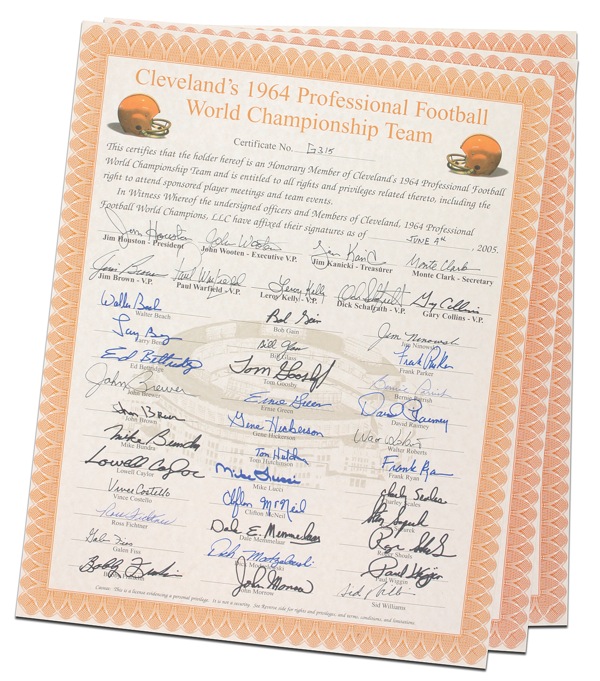 Cleveland's 1964 Professional Football
World Championship Team
Certificate No. G315
This certifies that the holder hereof is an Honorary Member of Cleveland's 1964 Professional Football
World Championship Team and is entitled to all rights and privileges related thereto, including the
right to attend sponsored player meetings and team events.
In Witness Whereof the undersigned officers and Members of Cleveland, 1964 Professional
Football World Champions, LLC have affixed their signatures as of JUNE 4th, 2005.
Jim Houston John Wooten Jim Kanicki Monte Clark
Jim Houston - President John Wooten - Executive V.P. Jim Kanicki - Treasurer Monte Clark - Secretary
Jim Brown Paul Warfield Leroy Kelly Dick Schafrath Gary Collins
Jim Brown - V.P. Paul Warfield - V.P. Leroy Kelly - V.P. Dick Schafrath - V.P. Gary Collins - V.P.
Walter Beach Bob Gain Jim Ninowski
Walter Beach Bob Gain Jim Ninowski
Larry Benz Bill Glass Frank Parker
Larry Benz Bill Glass Frank Parker
Ed Bettridge Tom Goosby Bernie Parrish
Ed Bettridge Tom Goosby Bernie Parrish
John Brewer Ernie Green David Raimey
John Brewer Ernie Green David Raimey
John Brown Gene Hickerson Walter Roberts
John Brown Gene Hickerson Walter Roberts
Mike Bundra Tom Hutch Frank Ryan
Mike Bundra Tom Hutchinson Frank Ryan
Lowell Caylor Mike Lucci Charley Scales
Lowell Caylor Mike Lucci Charley Scales
Vince Costello Clifton McNeil
Vince Costello Clifton McNeil
Ross Fichtner Dale E. Memmelaar
Ross Fichtner Dale Memmelaar Shoals
Galen Fiss Dick Modzelewski Paul Wiggin
Galen Fiss Dick Modzelewski Paul Wiggin
Bobby Franklin John Morrow Sid Williams
John Morrow Sid Williams
Caveat: This is a license evidencing a personal privilege. It is not a security. Jim Renova sole for rights and privileges and terms, conditions, and limitations.